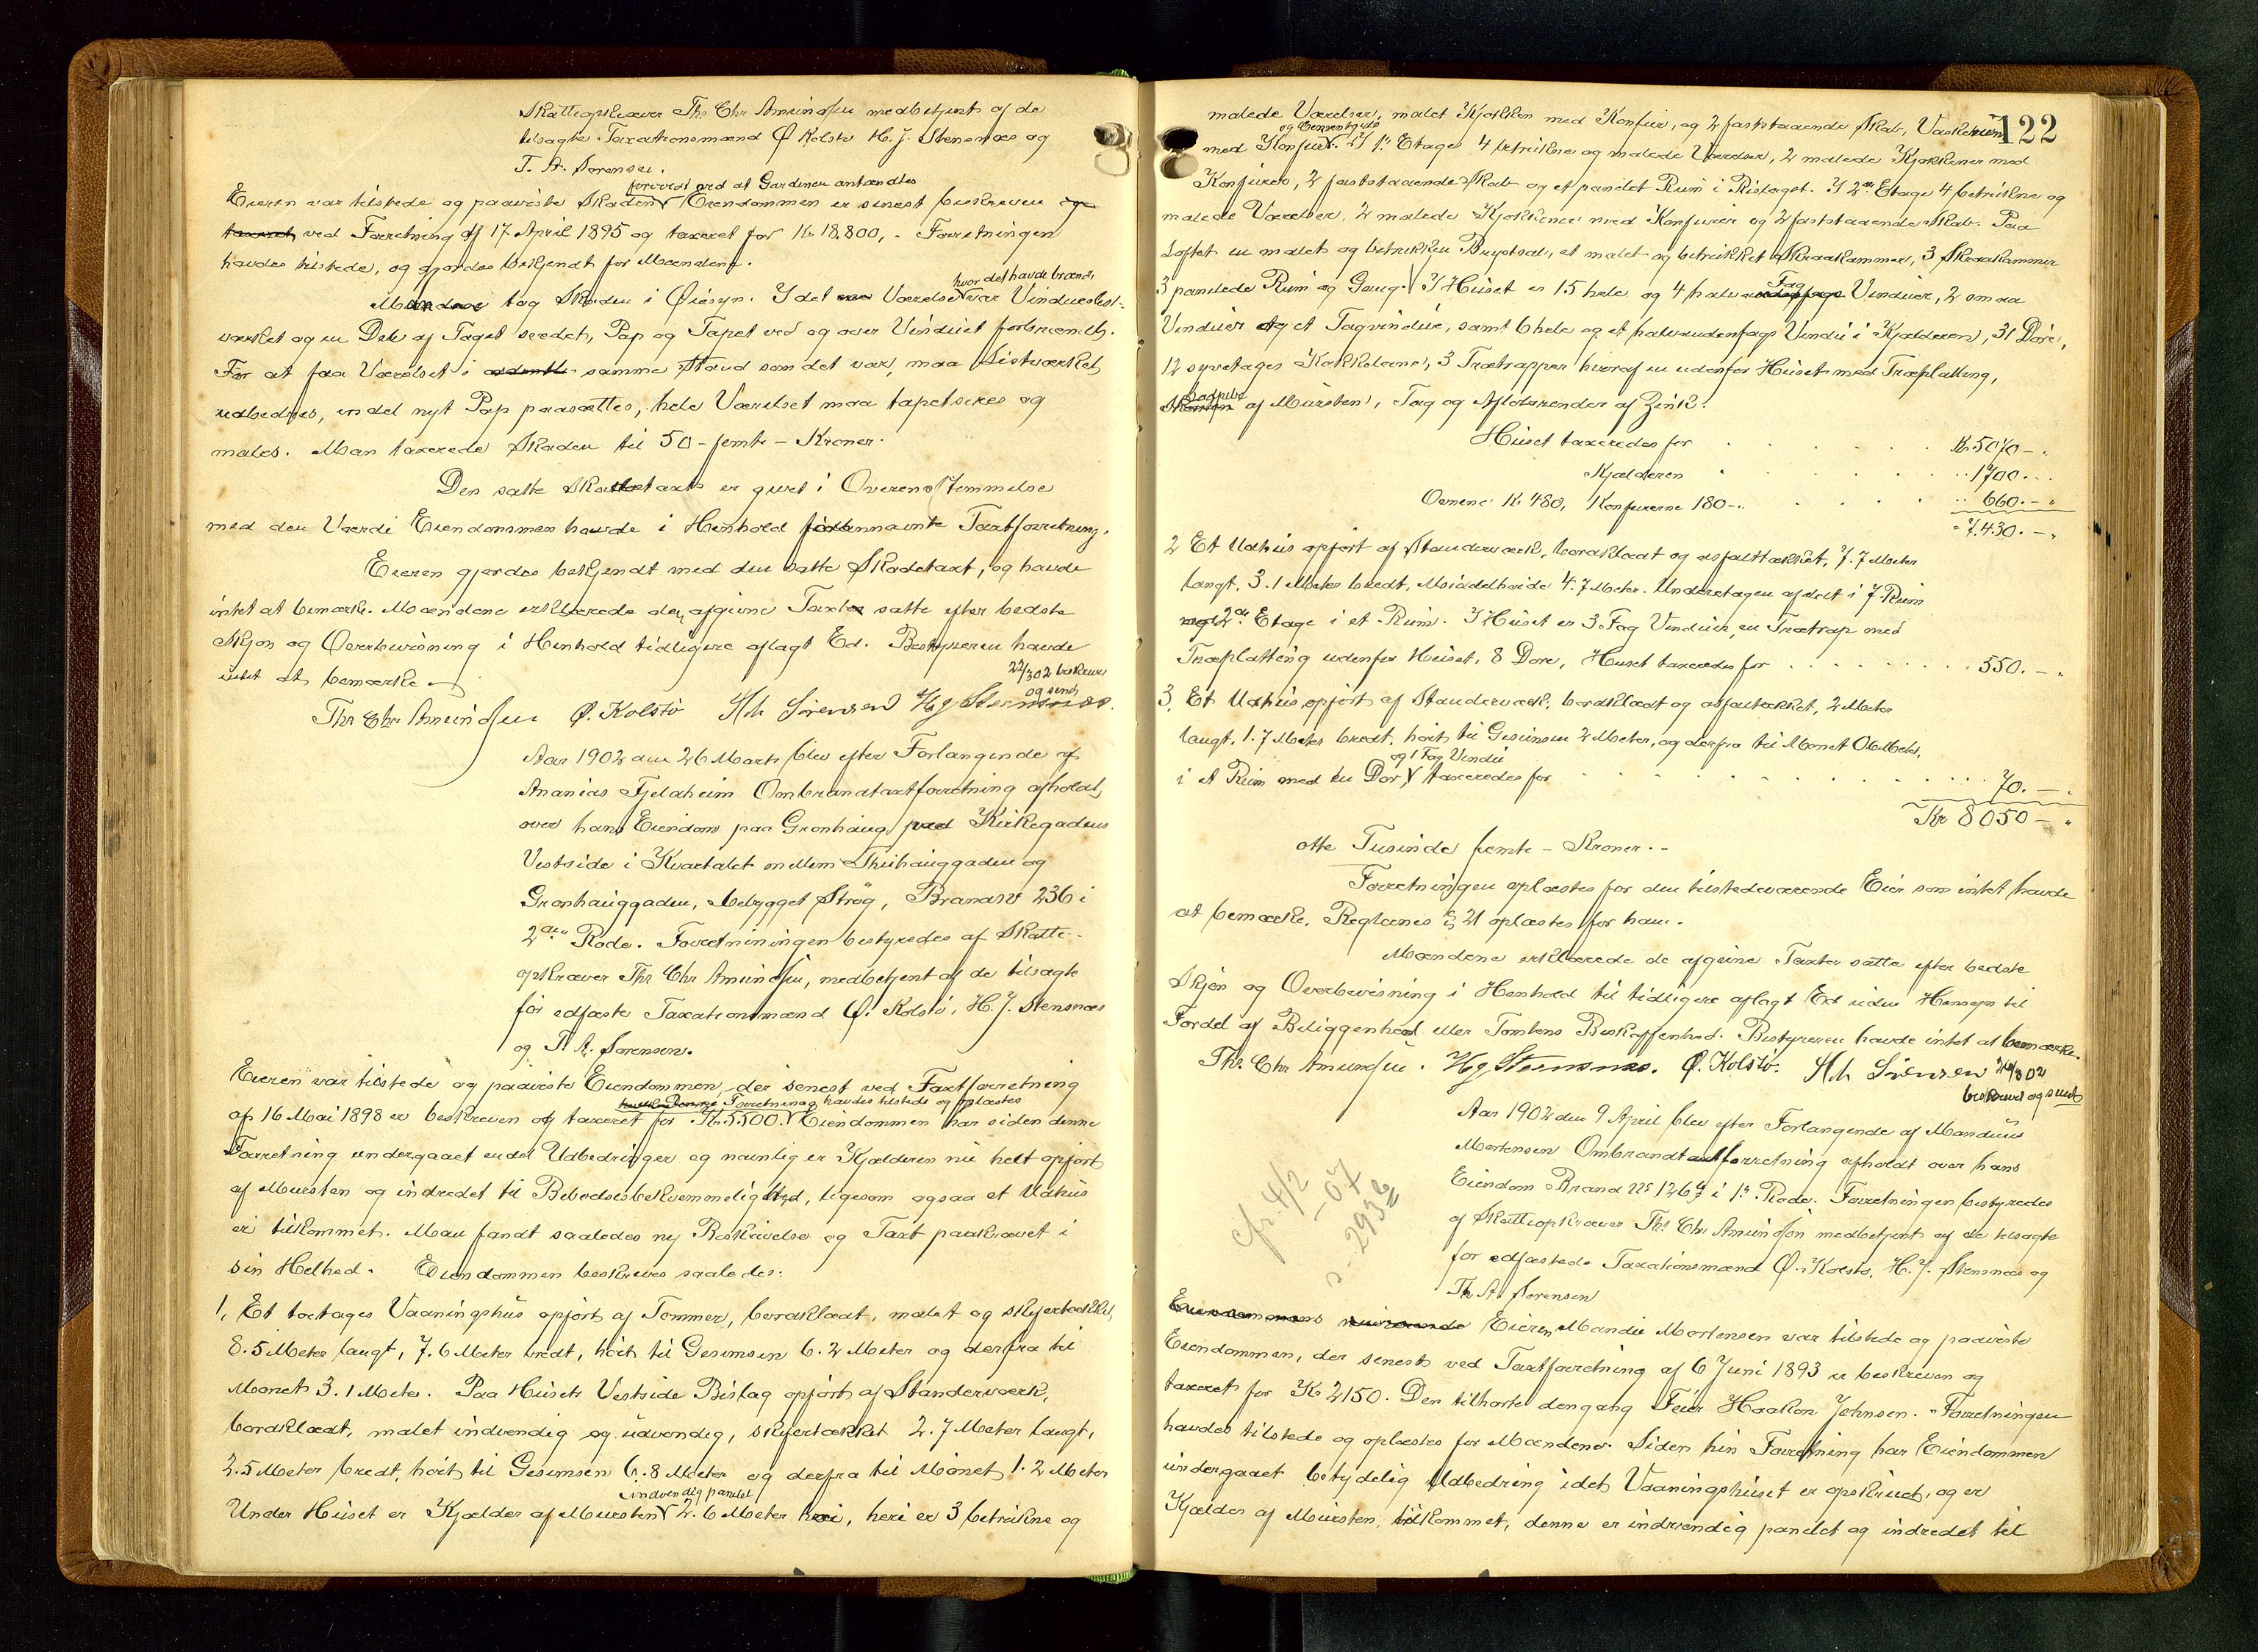 Skatteopkræver Ths Chr Amundsen medbetjent af de
tilsagte Taxationsmænd Ø Kolstø H. J. Stensnæs og
T. A. Sørensen.
forvoldt ved at Gardinen antændtes
Eieren var tilstede og paaviste Skaden Eiendommen er senest beskreven og
taxeret ved Forretning af 17 April 1895 og taxeret for Kr 18.800,- Forretningen
havdes tilstede, og gjordes bekjendt for Mændene.
hvor det havde brændt
Mændene tog Skaden i Øiesyn. I det Værelse var Vindueslist-
værket og en Del af Taget svedet, Pap og Tapet ved og over Vinduet forbrændt.
For at faa Værelset i samme Stand som det var, maa Listværket
udbedres, endel nyt Pap paasættes, hele Værelset maa tapetseres og
males. Man taxerede Skaden til 50 - femti - Kroner.
Den satte Skadetaxt er givet i Overensstemmelse
med den Værdi Eiendommen havde i Henhold førbenævnte Taxtforretning.
Eieren gjordes bekjendt med den satte Skadetaxt, og havde
intet at bemærke. Mændene erklærede den afgivne Taxt satte efter bedste
Skjøn og Overbevisning i Henhold tidligere aflagt Ed. Bestyreren havde
intet at bemærke
22/3 02 beskreven
og sendt
Ths Chr Amundsen Ø. Kolstø Th Sørensen H J Stensnæs.
Aar 1902 den 26 Marts blev efter Forlangende af
Ananias Fjeldheim Ombrandtaxtforretning afholdt
over hans Eiendom paa Grønhaug ved Kirkegadens
Vestside i Kvartalet mellem Thuhauggaden og
Grønhauggaden, bebygget Strøg, Brandno 236 i
2den Rode. Forretningen bestyredes af Skatte-
opkræver Ths Chr Amundsen, medbetjent af de tilsagte
for edfæste Taxationsmænd Ø. Kolstø, H. J. Stensnæs
og T. A. Sørensen.
Eieren var tilstede og paaviste Eiendommen, der senest ved Taxtforretning
Forretning havdes tilstede og oplæstes
af 16 Mai 1898 er beskreven og taxeret for Kr. 5500. Eiendommen har siden denne
Forretning undergaaet endel Udbedringer og navnlig er Kjælderen nu helt opført
af Mursten og indredet til Beboelsesbekvemmelighed, ligesom ogsaa et Udhus
er tilkommet. Man fandt saaledes ny Beskrivelse og Taxt paakrævet i
sin Helhed. Eiendommen beskreves saaledes:
1, Et toetages Vaaningshus opført af Tømmer, bordklædt, malet og skifertækket,
8.5 Meter langt, 7.6 Meter bredt, høit til Gesimsen 6.2 Meter og derfra til
Mønet 3.1 Meter. Paa Husets Vestside Bislag opført af Standerværk,
bordklædt, malet indvendig og udvendig, skifertækket 2.7 Meter langt,
2.5 Meter bredt, høit til Gesimsen 6.8 Meter og derfra til Mønet 1.2 Meter
indvendig panelet
Under Huset er Kjælder af Mursten 2.6 Meter høi, heri er 3 betrukne og
122
malede Værelser, malet Kjøkken med Komfur, og 2 faststaaende Skab, Vaskerum
med Komfur. I 1ste Etage 4 betrukne og malede Værelser, 2 malede Kjøkkener med
Komfurer, 2 faststaaende Skab og et panelet Rum i Bislaget. I 2den Etage 4 betrukne og
malede Værelser, 2 malede Kjøkkener med Komfurer og 2 faststaaende Skab. Paa
Loftet en malet og betrukken Brystsal, et malet og betrukket Skraakammer, 3 Skraakammer
Fag
3 panelede Rum og Gang. I Huset er 15 hele og 4 halve Vinduer, 2 smaa
Vinduer og et Tagvindue, samt 6 hele og et halvandenfags Vindu i Kjælderen, 31 Døre,
12 Kakkelovne, 3 Trætrapper hvoraf en udenfor Huset med Træplatting,
af Mursten, Tag og Afløbsrender af Zink.
Huset taxeredes for Kr. 5090 -
Kjælderen 1700. -
Ovnene Kr 480, Komfurerne 180 - 660. -
7.430. -
2 Et Udhus opført af Standerværk, bordklædt og asfalttækket, 7.7 Meter
langt, 3.1 Meter bredt, Middelhøide 4.7 Meter. Underetagen afdelt i 7 Rum
og 2den Etage i et Rum. I Huset er 3 Fag Vinduer, en Trætrap med
Træplatting udenfor Huset, 8 Døre, Huset taxeredes for 550. -
3, Et Udhus opført af Standerværk, bordklædt og asfalttækket, 2 Meter
langt, 1.7 Meter bredt, høit til Gesimsen 2 Meter, og derfra til Mønet 0.6 Meter,
og 1 Fag Vindu
i et Rum med en Dør taxeredes for 70. -
Kr 8050 -
otte Tusinde femti - Kroner. -
Forretningen oplæstes for den tilstedeværende Eier som intet havde
at bemærke. Reglernes § 21 oplæstes for ham.
Mændene erklærede de afgivne Taxter satte efter bedste
Skjøn og Overbevisning i Henhold til tidligere aflagt Ed uden Hensyn til
Fordel af Beliggenhed eller Tomtens Beskaffenhed. Bestyreren havde intet at bemærke.
Ths. Chr Amundsen. H J Stensnæs. Ø. Kolstø. Th Sørensen
beskrevet og sendt
Aar 1902 den 9 April blev efter Forlangende af Mandius
Mortensen Ombrandtaxtforretning afholdt over hans
Eiendom Brand No 126 i 1ste Rode. Forretningen bestyredes
af Skatteopkræver Ths Chr Amundsen medbetjent af de tilsagte
for edfæstede Taxationsmænd Ø. Kolstø, H. J. Stensnæs og
Th A. Sørensen
cfr. 4/2
-07
s. 293b
Eiendommens nuværende Eieren Mandius Mortensen var tilstede og paaviste
Eiendommen, der senest ved Taxtforretning af 6 Juni 1893 er beskreven og
taxeret for Kr 2150. Den tilhørte dengang Feier Haakon Johnsen. Forretningen
havdes tilstede og oplæstes for Mændene. Siden hin Forretning har Eiendommen
undergaaet betydelig Udbedring idet Vaaningshuset er opskruet, og er
Kjælder af Mursten, tilkommet, denne er indvendig panelet og indredet til